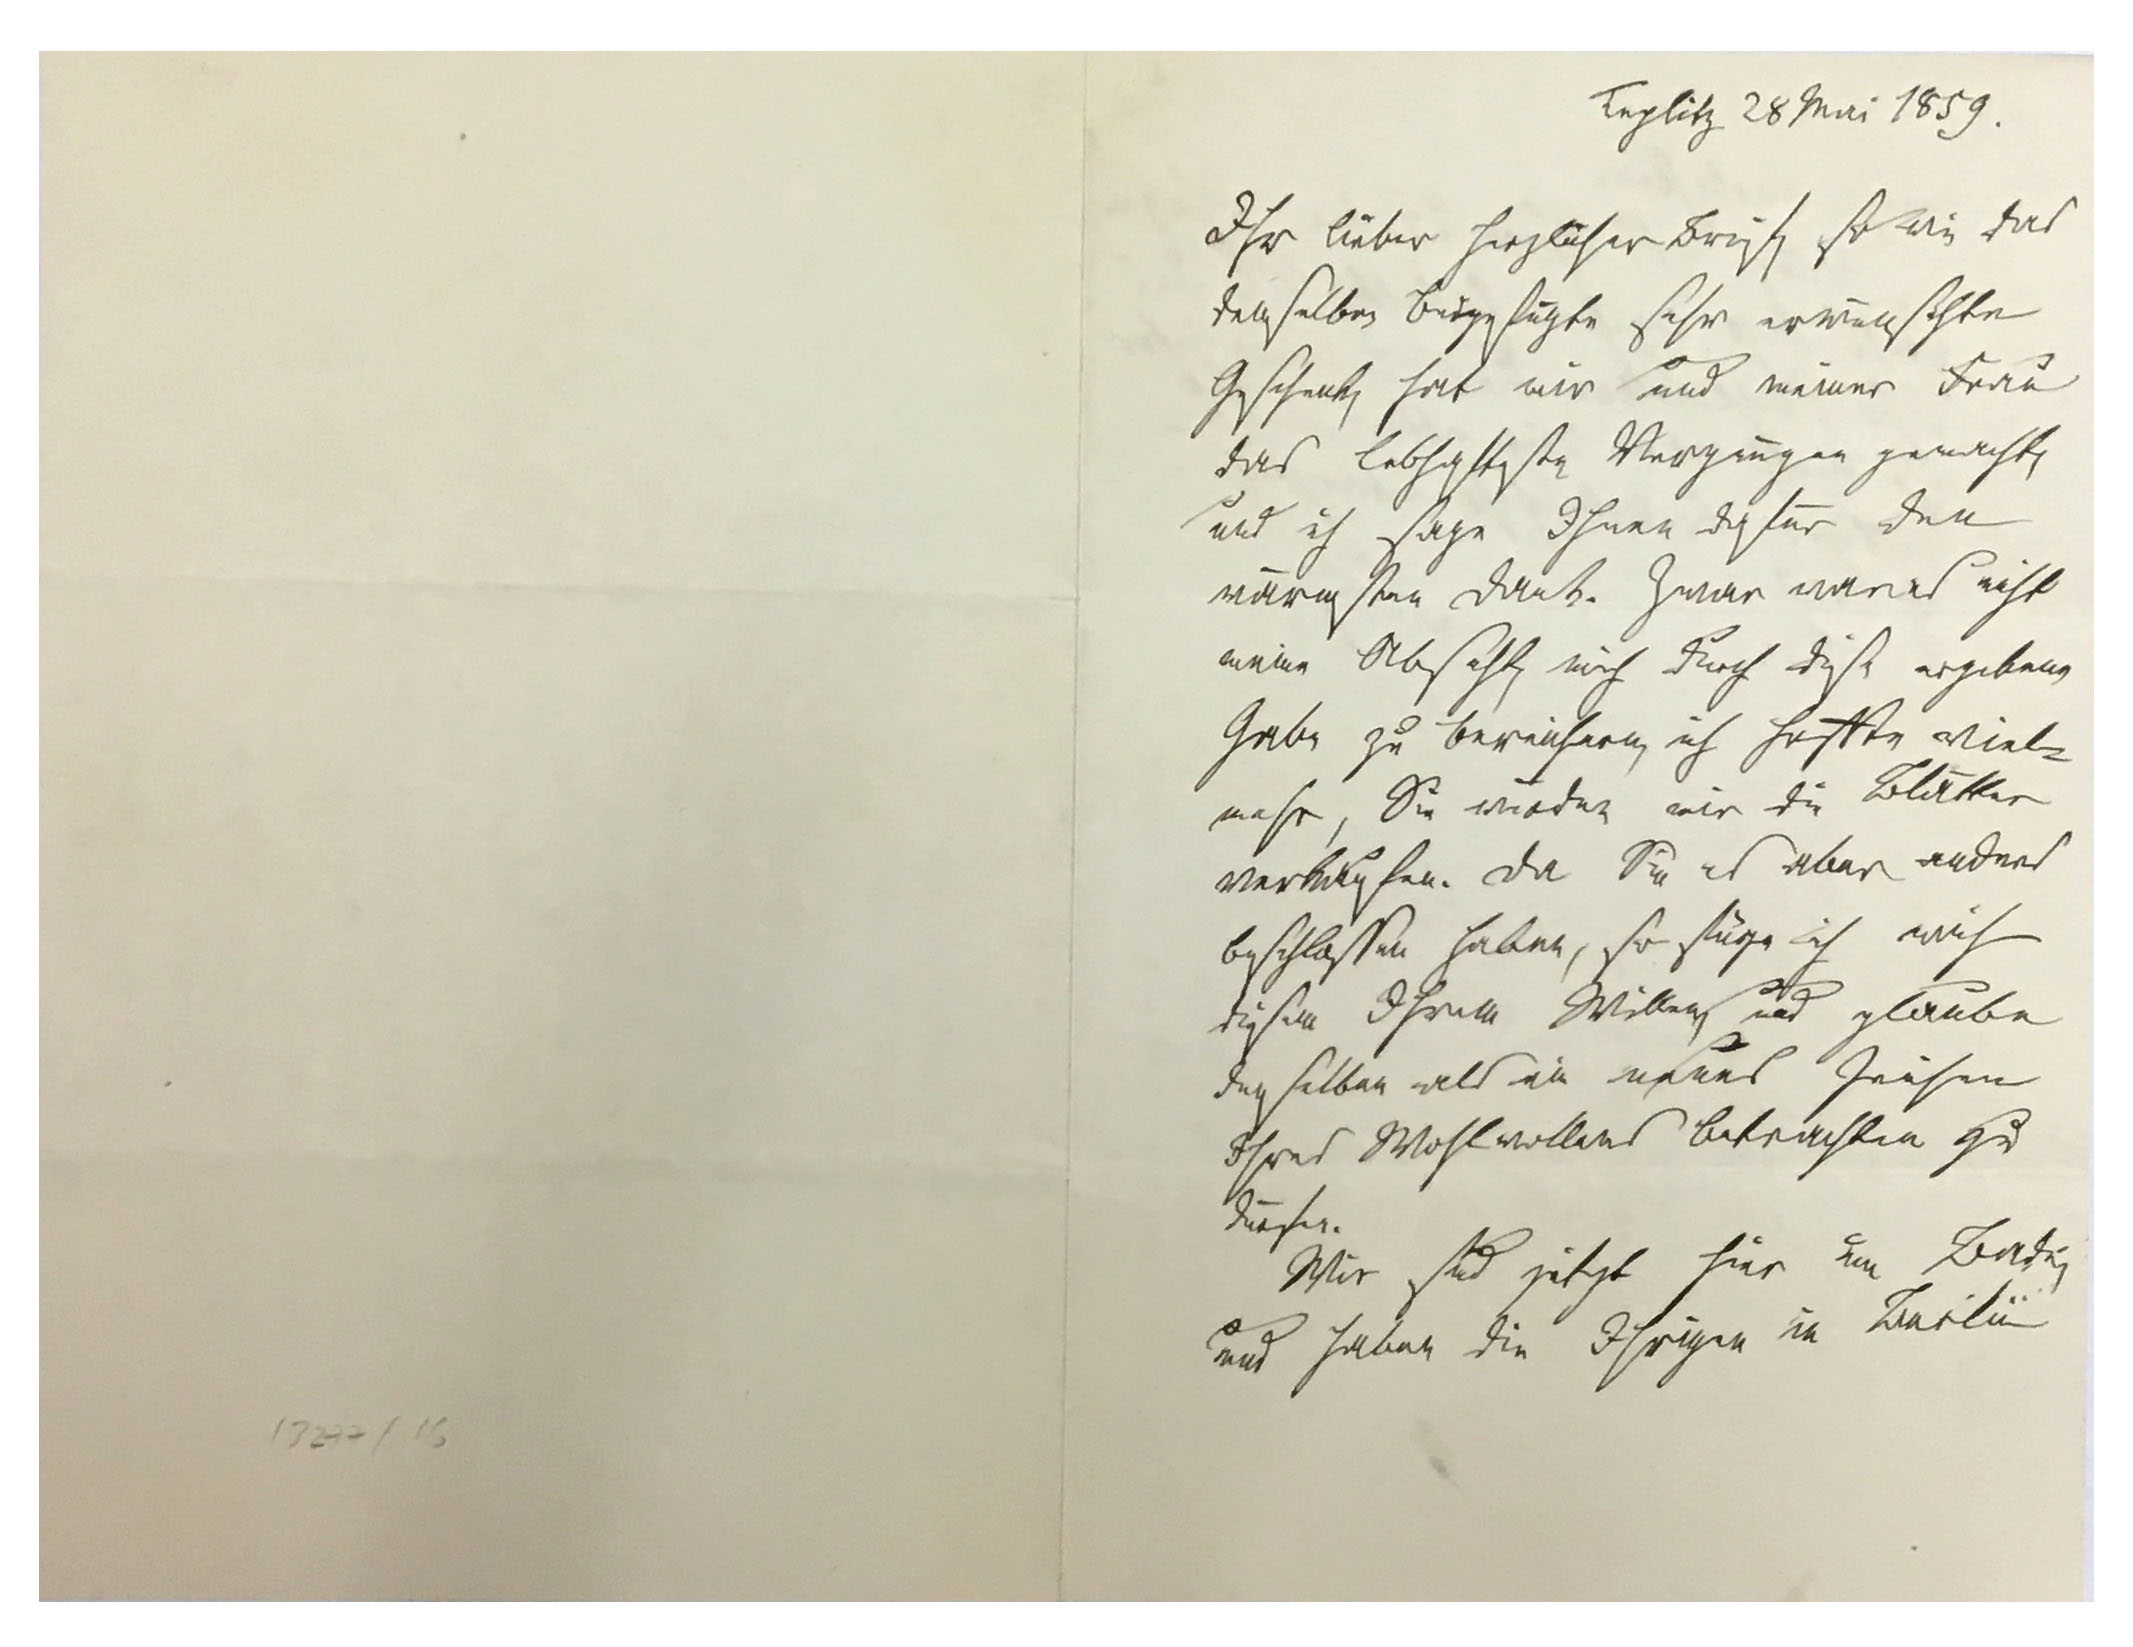 Teplitz 28 Mai 1859.
Ihr lieber herzlicher Brief, so wie das
demselben beigefügte sehr erwünschte
Geschenk, hat mir und meiner Frau
das lebhafteste Vergnügen gemacht,
und ich sage Ihnen dafür den
wärmsten Dank. Zwar war es nicht
meine Absicht, mich durch diese
Gabe zu bereichern, ich hoffte viel=
mehr, Sie würden mir die Blätter
verkaufen. Da Sie es aber anders
beschlossen haben, so füge ich mich
diesem Ihrem Willen, und glaube
denselben als ein neues Zeichen
Ihres Wohlwollens betrachten zu
dürfen.
Wir sind jetzt hier im Bade,
und haben die Ihrigen in Berlin
13277/16